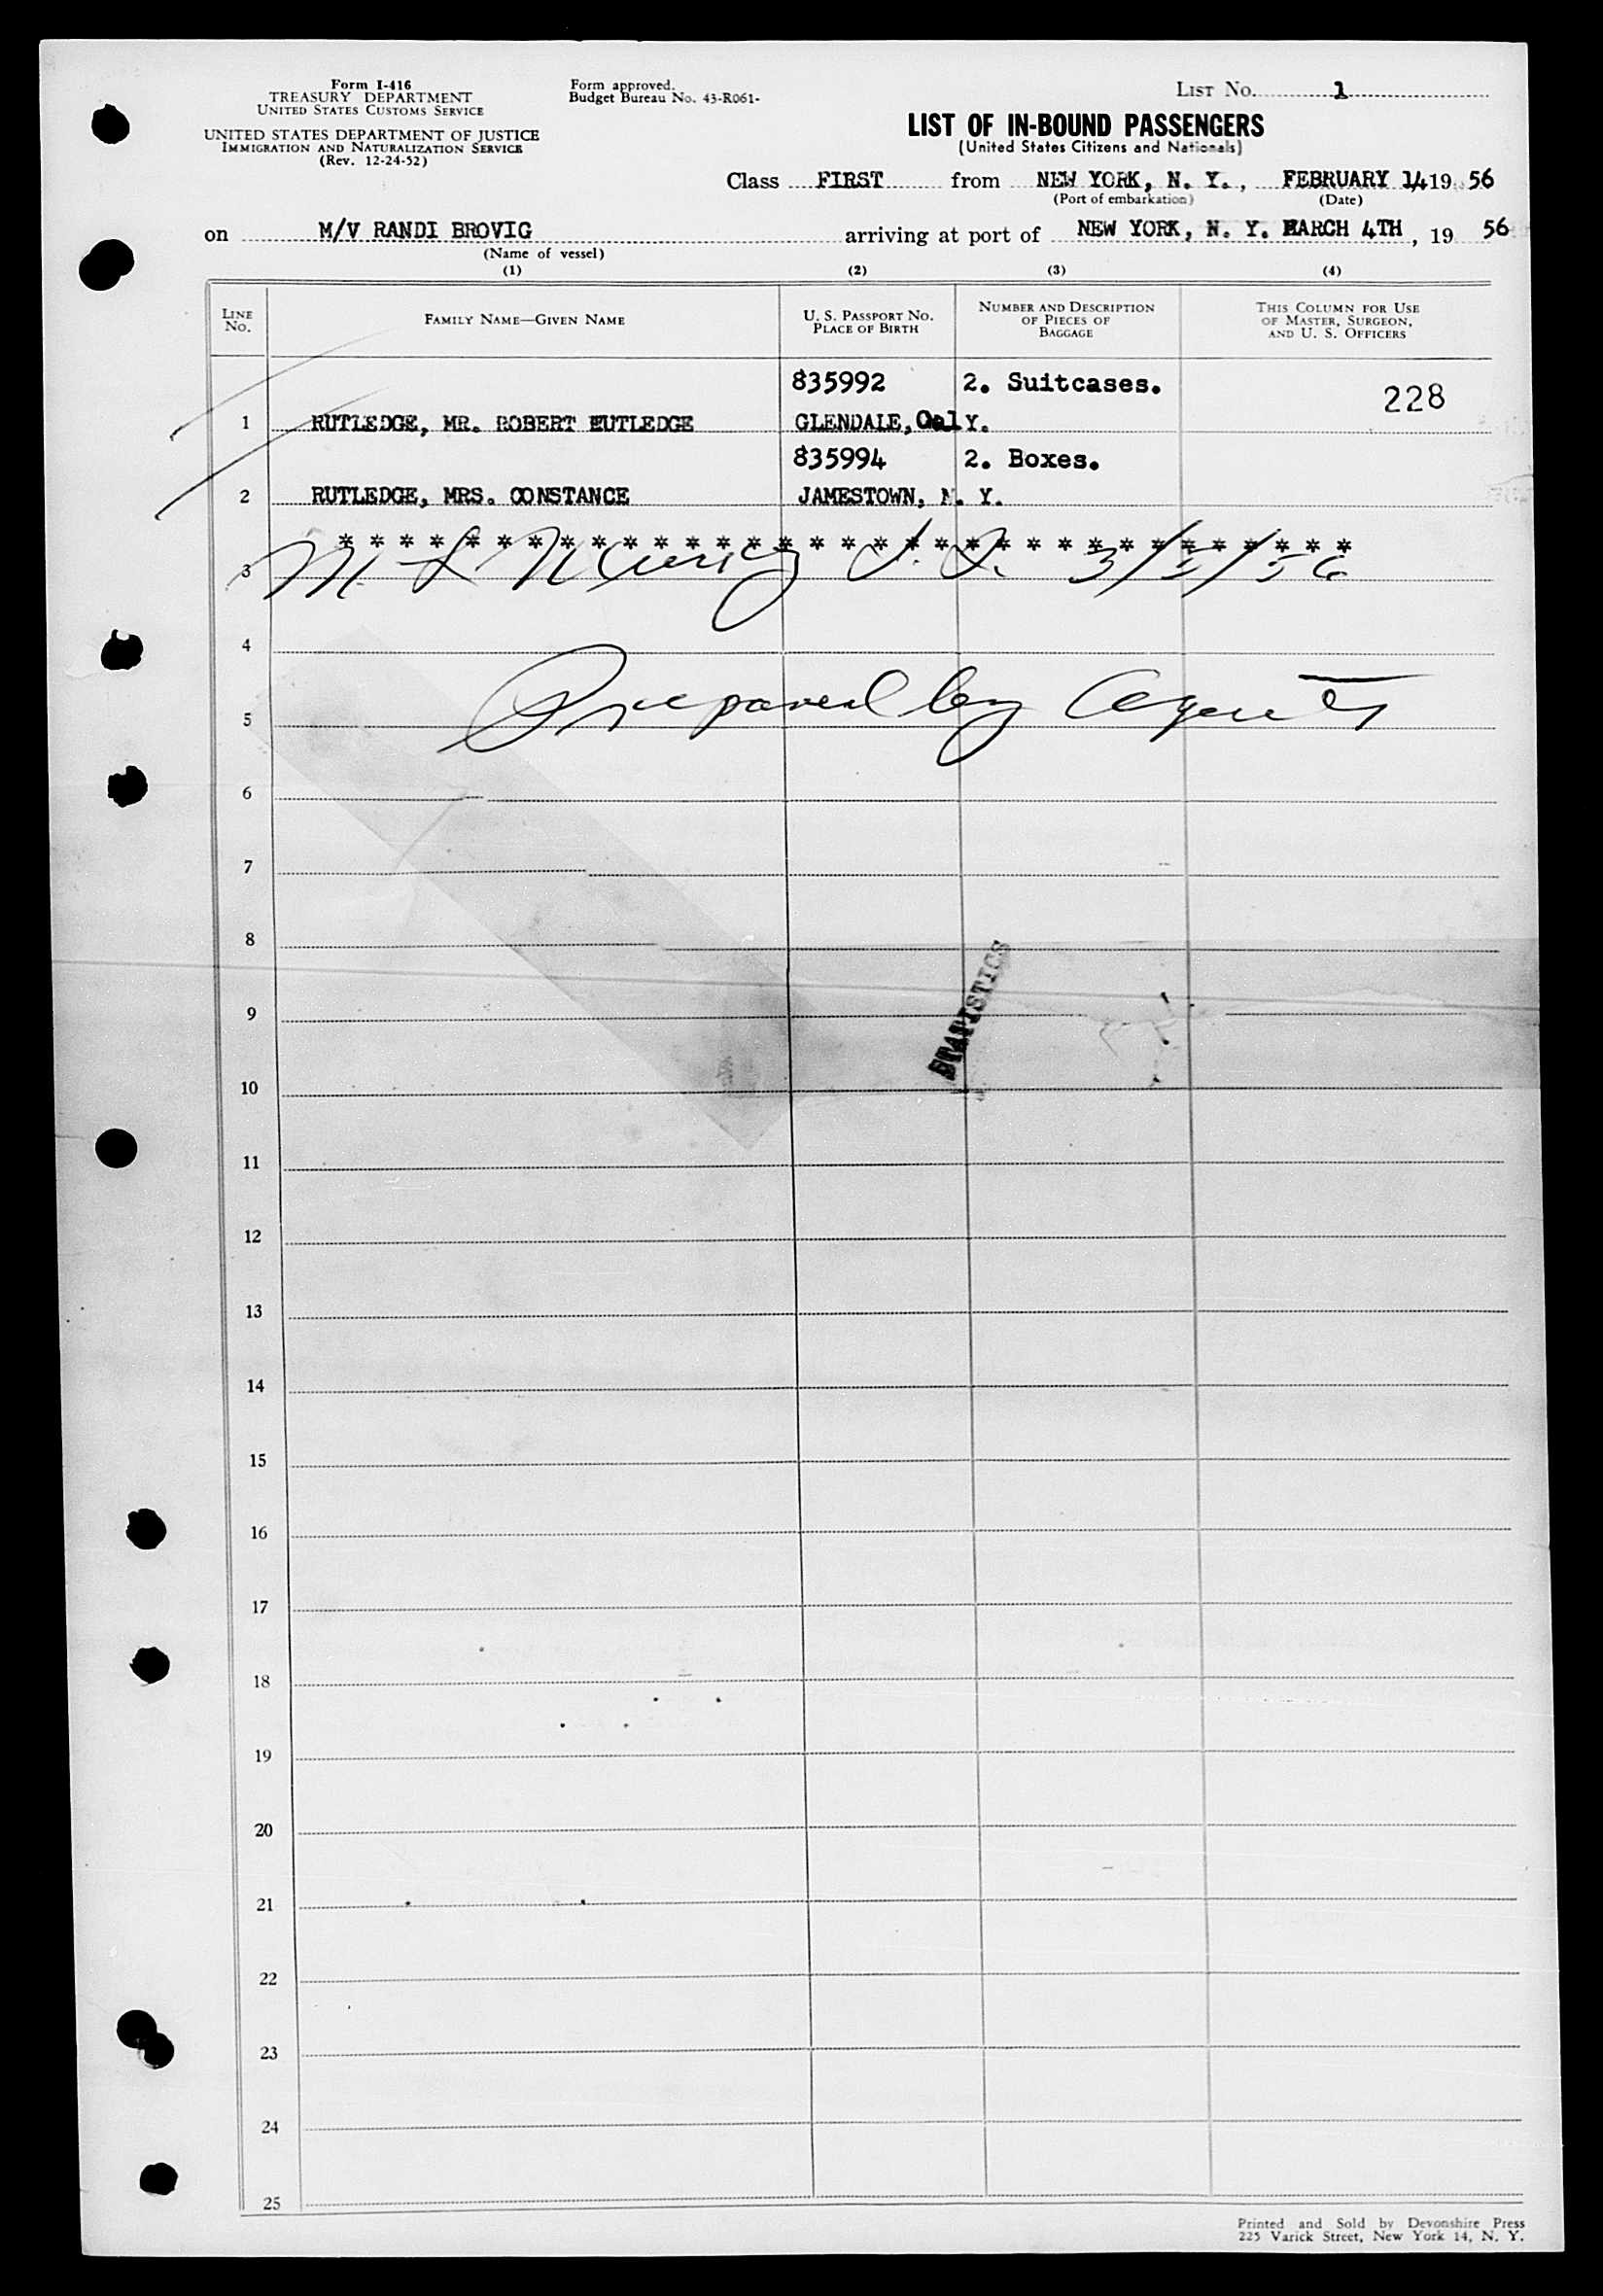 Form I-416
TREASURY DEPARTMENT
UNITED STATES CUSTOMS SERVICE
UNITED STATES DEPARTMENT OF JUSTICE
IMMIGRATION AND NATURALIZATION SERVICE
(Rev. 12-24-52)
Form approved.
Budget Bureau No. 43-R061-
LIST No. 1
LIST OF IN-BOUND PASSENGERS
(United States Citizens and Nationals)
Class FIRST from NEW YORK, N. Y., FEBRUARY 14 19 56
(Port of embarkation) (Date)
on M/V RANDI BROVIG arriving at port of NEW YORK, N. Y. MARCH 4TH, 19 56
(Name of vessel)
(1) (2) (3) (4)
LINE No. FAMILY NAME—GIVEN NAME U. S. PASSPORT NO. PLACE OF BIRTH NUMBER AND DESCRIPTION OF PIECES OF BAGGAGE THIS COLUMN FOR USE OF MASTER, SURGEON, AND U. S. OFFICERS
835992 2. Suitcases. 228
1 RUTLEDGE, MR. ROBERT RUTLEDGE GLENDALE, Cal Y.
835994 2. Boxes.
2 RUTLEDGE, MRS. CONSTANCE JAMESTOWN, N. Y.
* * * * * * * * * * * * * * * * * * * * * * * * * * * * * * * * *
3 3/5/56
4
5 Prepared by Agents
6
7
8
STATISTICS
9
10
11
12
13
14
15
16
17
18
19
20
21
22
23
24
25
Printed and Sold by Devonshire Press
225 Varick Street, New York 14, N. Y.